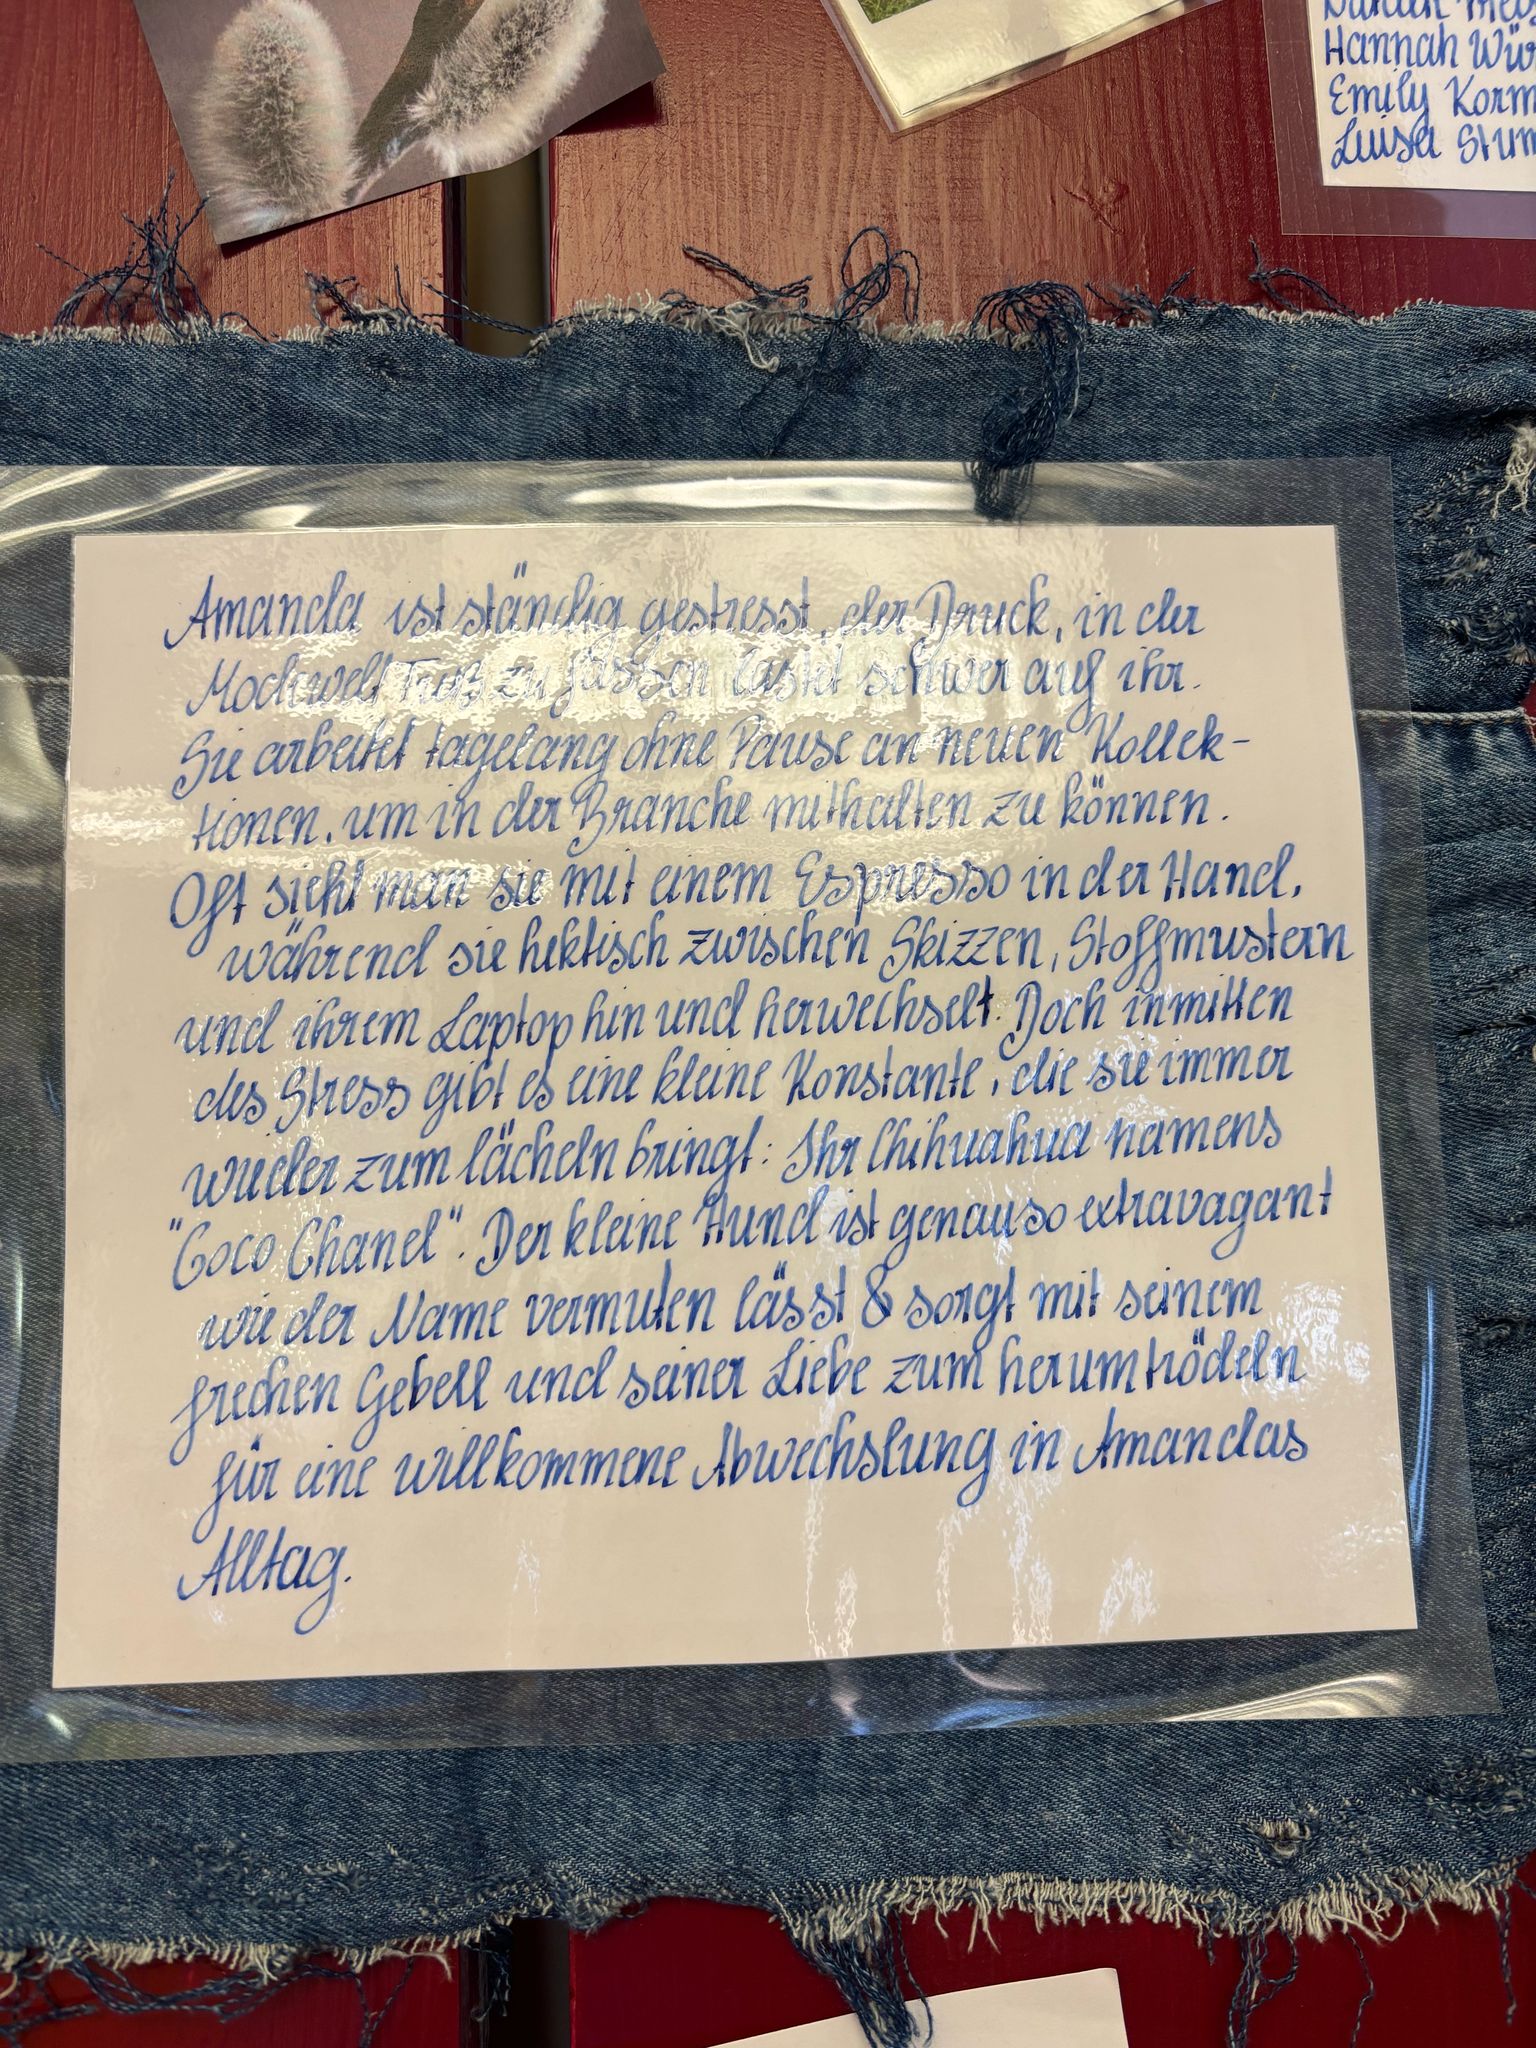 Hannah
Emily
Luisa
Amanda ist ständig gestresst, der Druck, in der
Modewelt Fuß zu fassen lastet schwer auf ihr.
Sie arbeitet tagelang ohne Pause an neuen Kollek-
tionen, um in der Branche mithalten zu können.
Oft sieht man sie mit einem Espresso in der Hand,
während sie hektisch zwischen Skizzen, Stoffmustern
und ihrem Laptop hin und herwechselt. Doch inmitten
des Stress gibt es eine kleine Konstante, die sie immer
wieder zum lächeln bringt: Ihr Chihuahua namens
"Coco Chanel". Der kleine Hund ist genauso extravagant
wie der Name vermuten lässt & sorgt mit seinem
frechen Gebell und seiner Liebe zum herumtrödeln
für eine willkommene Abwechslung in Amandas
Alltag.